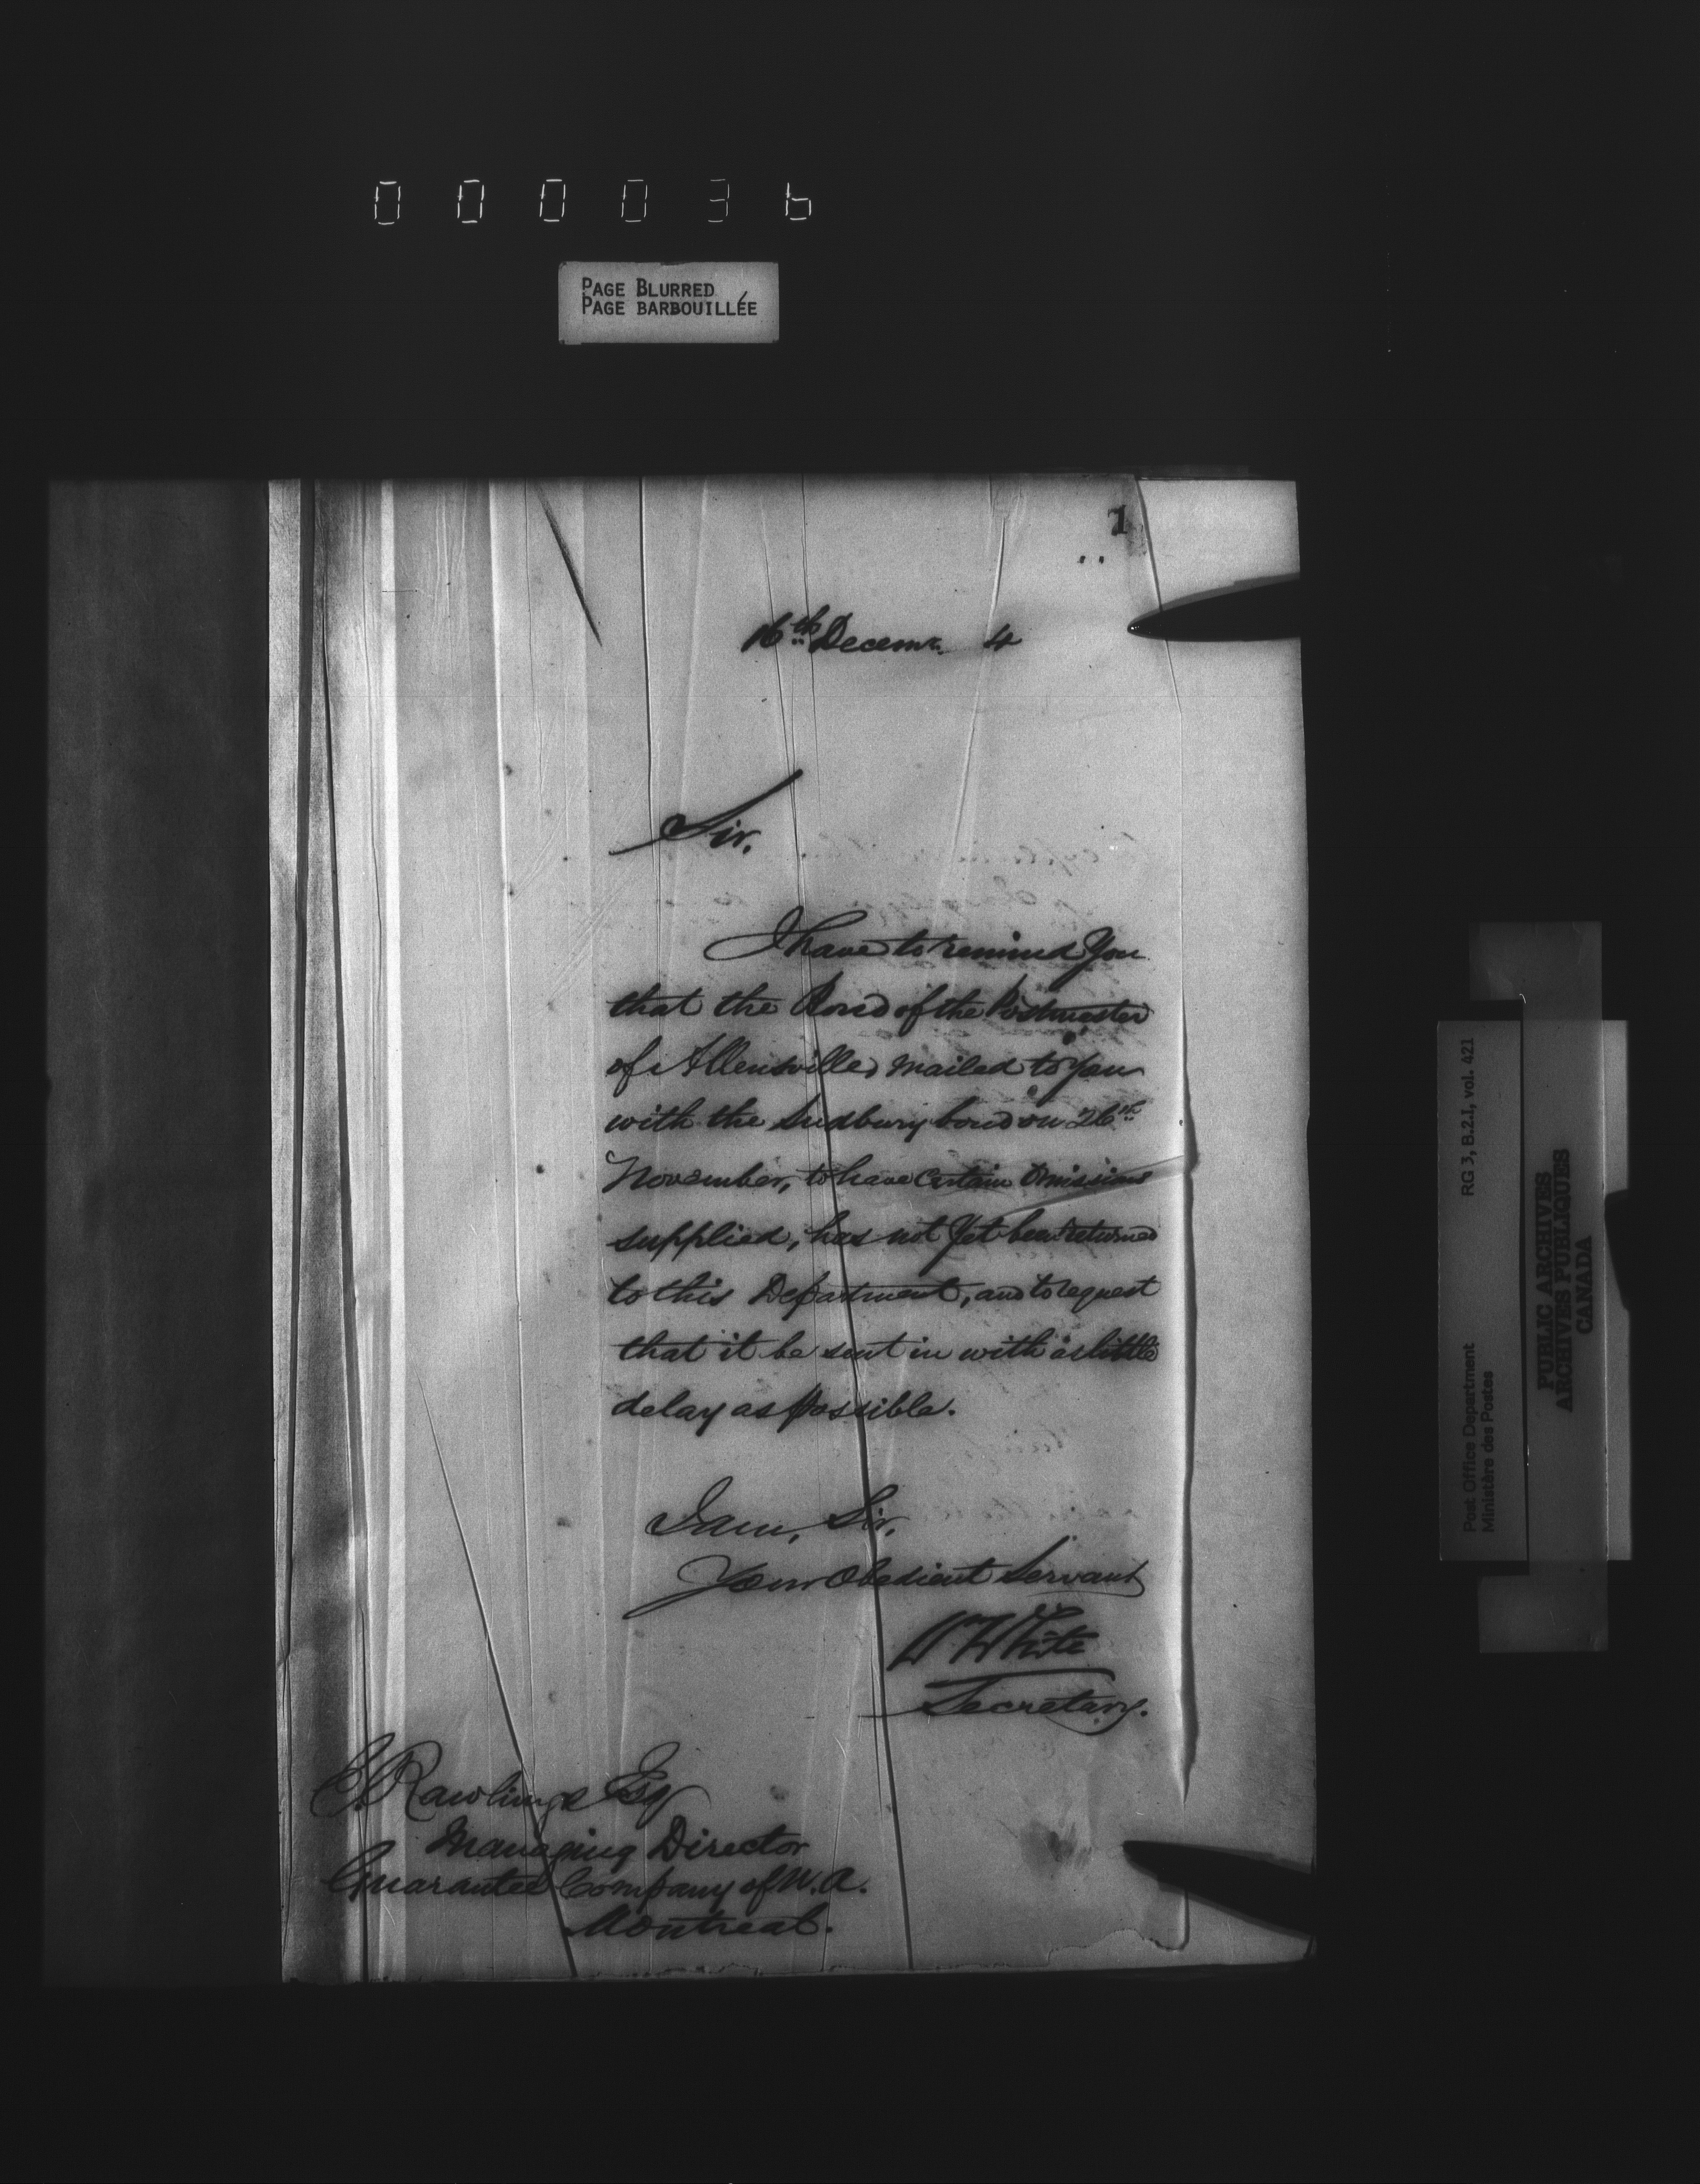 000036
PAGE BLURRED
PAGE BARBOUILLÉE
1
16th Decemr. 4
Sir.
I have to remind You
that the Bond of the Postmaster
of Allensville, mailed to You
with the Sudbury bond on 26th
November, to have Certain Omissions
supplied, has not Yet been returned
to this Department, and to request
that it be sent in with as little
delay as possible.
I am, Sir,
Your Obedient Servant
W White
Secretary.
E. Rawlings Esq
Managing Director
Guarantee Company of N.A.
Montreal.
RG 3, B.2.I, vol. 421
Post Office Department
Ministère des Postes
PUBLIC ARCHIVES
ARCHIVES PUBLIQUES
CANADA